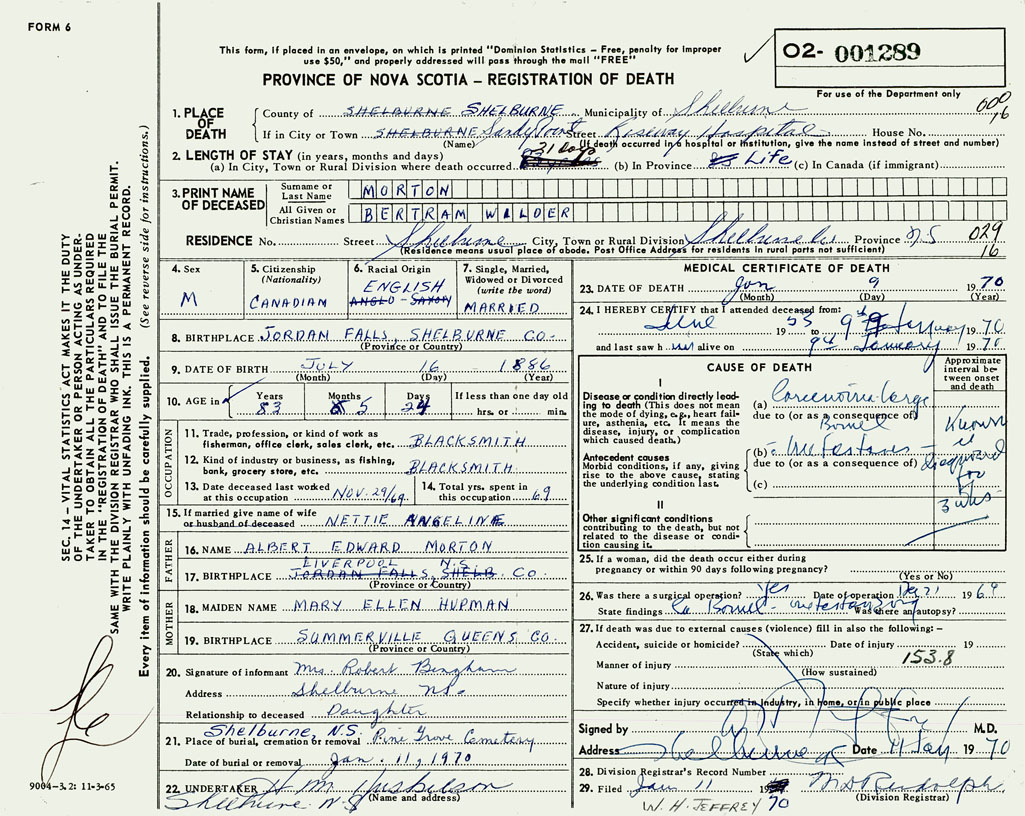 FORM 6
This form, if placed in an envelope, on which is printed "Dominion Statistics – Free, penalty for improper
use $50," and properly addressed will pass through the mail "FREE"
PROVINCE OF NOVA SCOTIA – REGISTRATION OF DEATH
O2- 001289
For use of the Department only
000
16
1. PLACE OF DEATH
County of SHELBURNE SHELBURNE Municipality of Shelburne
If in City or Town SHELBURNE Sandy Point Street Roseway Hospital House No.
(Name) (If death occurred in a hospital or institution, give the name instead of street and number)
2. LENGTH OF STAY (in years, months and days)
(a) In City, Town or Rural Division where death occurred 31 Days (b) In Province Life (c) In Canada (if immigrant)
3. PRINT NAME OF DECEASED
Surname or Last Name MORTON
All Given or Christian Names BERTRAM WILDER
RESIDENCE No. Street Shelburne City, Town or Rural Division Shelburne Co. Province N.S 029
(Residence means usual place of abode. Post Office Address for residents in rural parts not sufficient) 16
4. Sex M
5. Citizenship (Nationality) CANADIAN
6. Racial Origin ENGLISH ANGLO-SAXON
7. Single, Married, Widowed or Divorced (write the word) MARRIED
8. BIRTHPLACE JORDAN FALLS, SHELBURNE CO.
(Province or Country)
9. DATE OF BIRTH JULY 16 1886
(Month) (Day) (Year)
10. AGE in Years 83 Months 5 Days 24 If less than one day old hrs. or min.
OCCUPATION
11. Trade, profession, or kind of work as fisherman, office clerk, sales clerk, etc. BLACKSMITH
12. Kind of industry or business, as fishing, bank, grocery store, etc. BLACKSMITH
13. Date deceased last worked at this occupation NOV. 29/69 14. Total yrs. spent in this occupation 69
15. If married give name of wife or husband of deceased NETTIE ANGELINE
FATHER
16. NAME ALBERT EDWARD MORTON
LIVERPOOL N.S.
17. BIRTHPLACE JORDAN FALLS, SHELB. CO.
(Province or Country)
MOTHER
18. MAIDEN NAME MARY ELLEN HUPMAN
19. BIRTHPLACE SUMMERVILLE QUEENS CO.
(Province or Country)
20. Signature of informant Mrs. Robert Bingham
Address Shelburne N.S.
Relationship to deceased Daughter
Shelburne, N.S.
21. Place of burial, cremation or removal Pine Grove Cemetery
Date of burial or removal Jan. 11, 1970
22. UNDERTAKER H. M. Huskilson
Shelburne N.S (Name and address)
MEDICAL CERTIFICATE OF DEATH
23. DATE OF DEATH Jan 9 1970
(Month) (Day) (Year)
24. I HEREBY CERTIFY that I attended deceased from:
June 1955 to 9th January 1970
and last saw h im alive on 9th January 1970
CAUSE OF DEATH
Approximate interval between onset and death
I
Disease or condition directly leading to death (This does not mean the mode of dying, e.g., heart failure, asthenia, etc. It means the disease, injury, or complication which caused death.)
(a) Carcinoma large
due to (or as a consequence of)
Bowel
Antecedent causes
Morbid conditions, if any, giving rise to the above cause, stating the underlying condition last.
(b) Metastases
due to (or as a consequence of)
(c)
Known
for
3 wks
II
Other significant conditions
contributing to the death, but not related to the disease or condition causing it.
25. If a woman, did the death occur either during
pregnancy or within 90 days following pregnancy?
(Yes or No)
26. Was there a surgical operation? Yes Date of operation Dec 21 1969
State findings Ca Bowel - metastasizing Was there an autopsy?
27. If death was due to external causes (violence) fill in also the following: –
Accident, suicide or homicide? Date of injury 19
(State which) 153.8
Manner of injury
(How sustained)
Nature of injury
Specify whether injury occurred in industry, in home, or in public place
Signed by M.D.
Address Shelburne Date 11 Jan 1970
28. Division Registrar's Record Number
29. Filed Jan 11 19 70 M D Rudolph
(Division Registrar)
W. H. JEFFREY
SEC. 14 – VITAL STATISTICS ACT MAKES IT THE DUTY
OF THE UNDERTAKER OR PERSON ACTING AS UNDER-
TAKER TO OBTAIN ALL THE PARTICULARS REQUIRED
IN THE "REGISTRATION OF DEATH" AND TO FILE THE
SAME WITH THE DIVISION REGISTRAR WHO SHALL ISSUE THE BURIAL PERMIT.
WRITE PLAINLY WITH UNFADING INK. THIS IS A PERMANENT RECORD.
Every item of information should be carefully supplied. (See reverse side for instructions.)
9004-3.2: 11-3-65